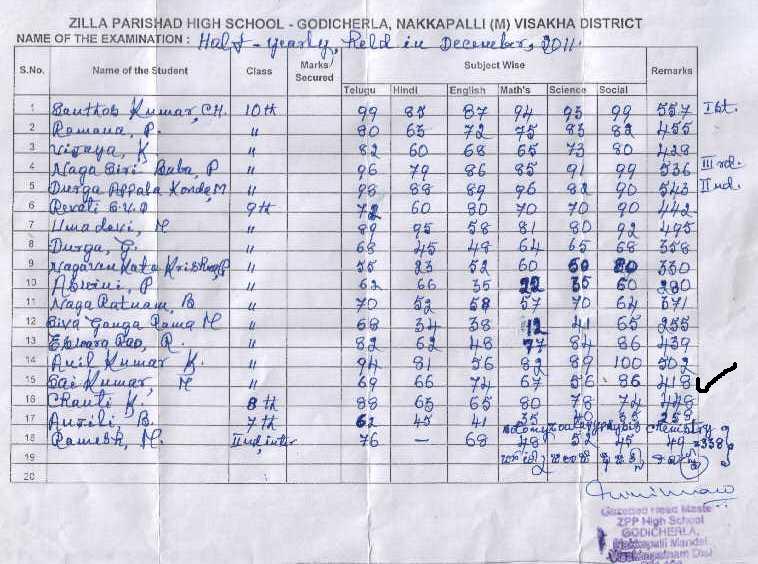 ZILLA PARISHAD HIGH SCHOOL - GODICHERLA, NAKKAPALLI (M) VISAKHA DISTRICT
NAME OF THE EXAMINATION : Half - yearly, Held in December, 2011.
S.No. Name of the Student Class Marks Secured Subject Wise Remarks
Telugu Hindi English Math's Science Social
1 Santhosh Kumar, CH. 10th 99 85 87 94 93 99 557 Ist.
2 Ramana, P. " 80 63 72 75 83 82 455
3 Vijaya, K " 82 60 68 65 73 80 428
4 Naga Siri Baba, P " 96 79 86 85 91 99 536 IIIrd.
5 Durga Appala Konda, M " 98 88 89 96 82 90 543 IInd.
6 Revati 9th 72 60 80 70 70 90 442
7 Umadevi, M " 89 95 58 81 80 92 495
8 Durga, G. " 68 45 48 64 65 68 358
9 Nagavenkata Krishna, P " 55 23 52 60 60 80 330
10 Aswini, P " 62 66 35 22 35 60 280
11 Naga Ratnam, B " 70 52 58 57 70 64 371
12 Siva Ganga Rama M " 68 34 38 12 41 65 255
13 Eswara Rao, R. " 82 62 48 77 84 86 439
14 Anil Kumar K. " 94 81 56 82 89 100 502
15 Sai Kumar, M " 69 66 74 67 56 86 418
16 Chanti K. 8th 88 65 65 80 78 72 448
17 B. 7th 62 45 41 35 40 35 258
Botany Zoology Physics Chemistry
18 Ramesh, M. IInd inter 76 – 68 48 52 45 49 =338
19
20
Gazetted Head Master
ZPP High School
GODICHERLA,
Nakkapalli Mandal
Visakhapatnam Dist